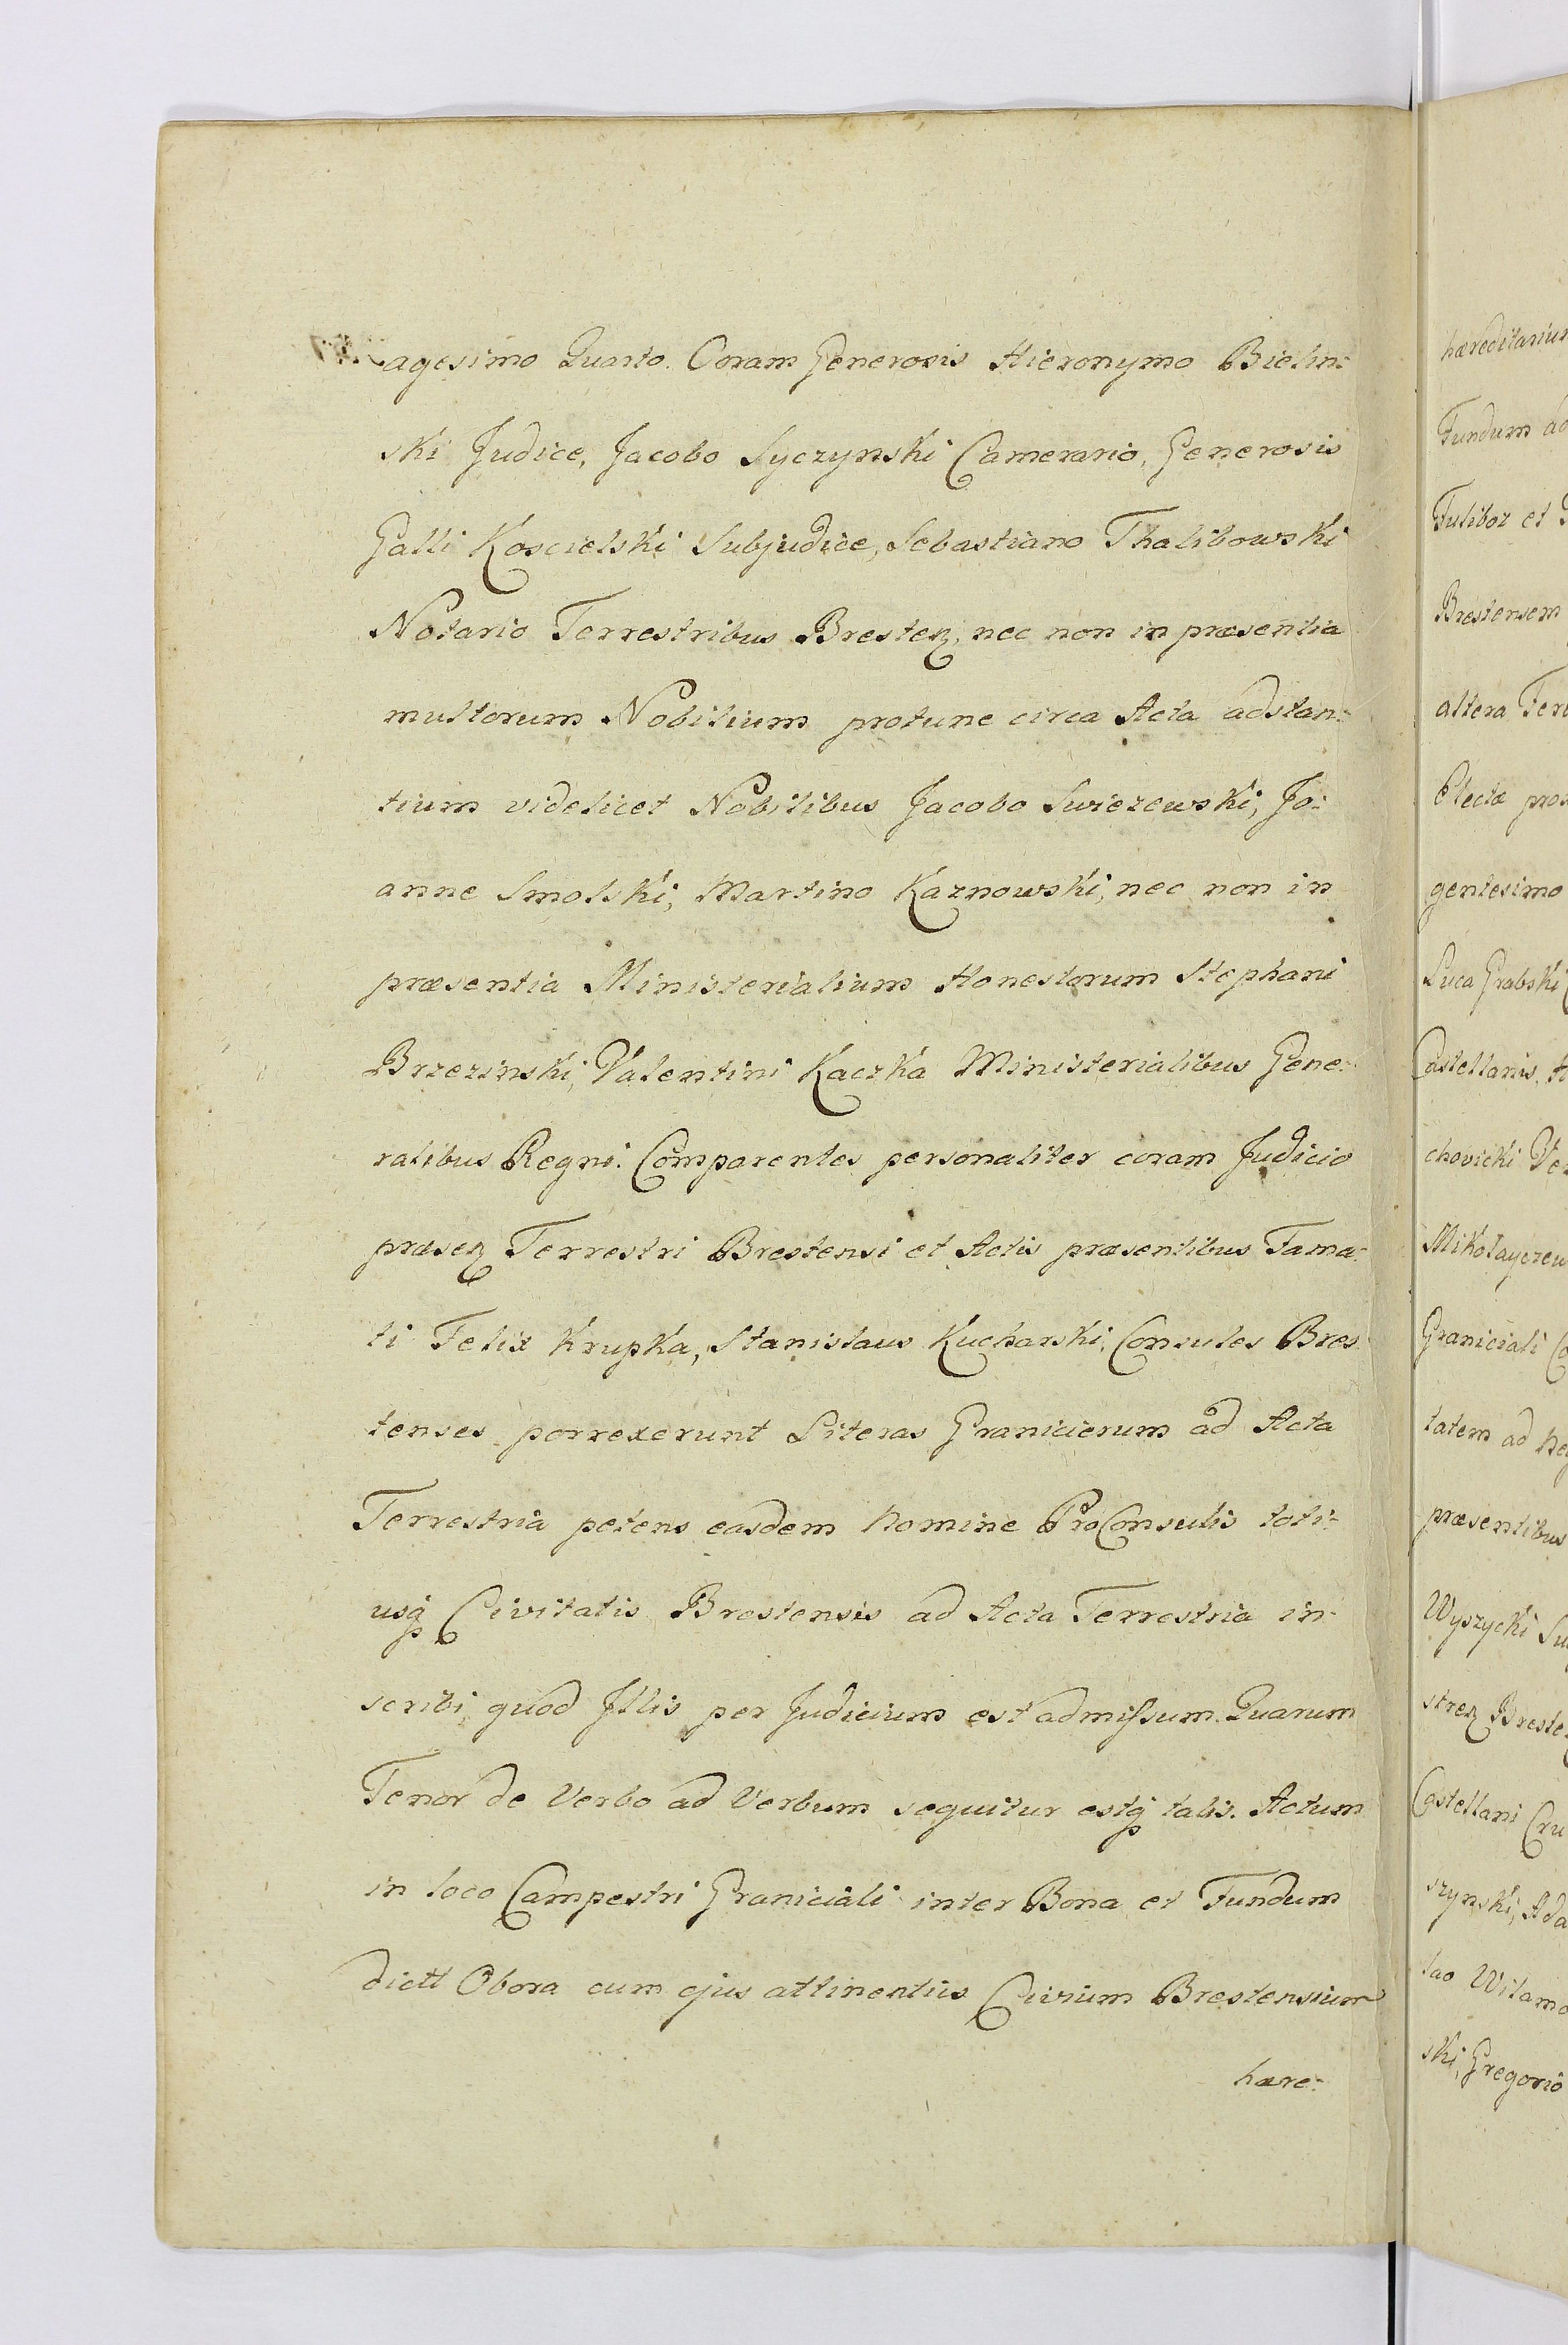 agesimo Quarto. Coram Generosis Hieronymo Bielin:
ski Judice, Jacobo Syczynski Camerario, Generosis
Galli Koscielski Subjudice, Sebastiano Thalibowski
Notario Terrestribus Brestenẓ, nec non in præsentia
multorum Nobilium protunc circa Acta adstan:
tium videlicet Nobilibus Jacobo Swiezewski, Jo:
anne Smolski, Martino Kaznowski, nec non in
præsentia Ministerialium Honestorum Stephani
Brzezinski, Valentini Kaczka Ministerialibus Gene:
ralibus Regni. Comparentes personaliter coram Judicio
præsenẓ Terrestri Brestensi et Actis præsentibus Fama:
ti Felix Krupka, Stanislaus Kucharski, Consules Bres:
tenses porrexerunt Literas Granicierum ad Acta
Terrestria petens easdem Nomine ProConsulis toti:
usq Civitatis Brestensis ad Acta Terrestria in:
scribi, quod Illis per Judicium est admiſsum. Quarum
Tenor de Verbo ad Verbum sequitur estq talis. Actum
in loco Campestri Graniciali inter Bona et Fundum
dictt Obora cum ejus attinentiis Civium Brestensium
hære:
Fundum ad
Fulibor et
Brestensem
altera
Electæ
gentesimo
Luca Grabski
Castellanis
chovicki
Graniciali
tatem ad
præsentibus
Wyszycki
Castellani
szynski, Ada
ski, Gregorio